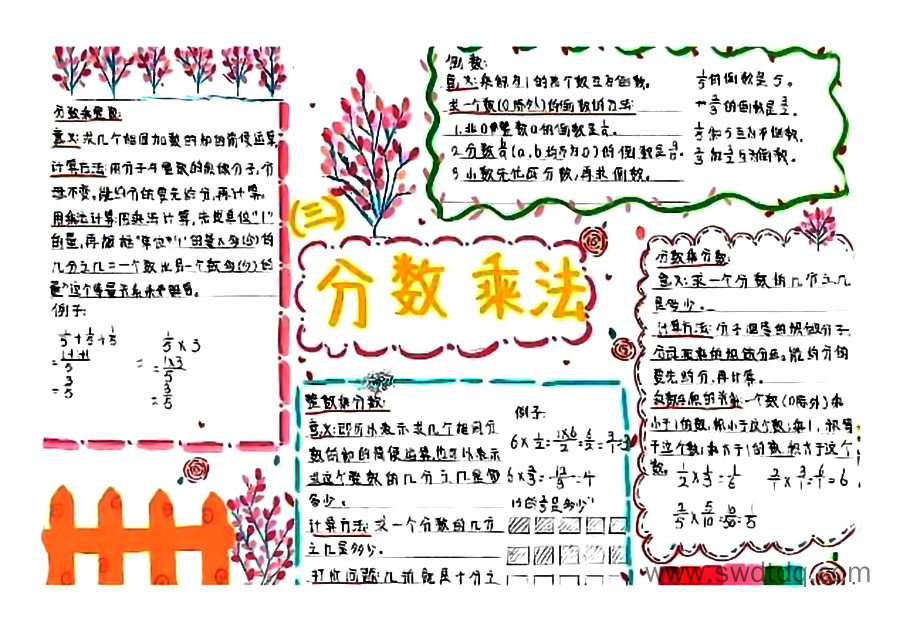 分数乘整数:
意义:求几个相同加数的和的简便运算
计算方法:用分子与整数的积做分子,分
母不变,能约分的要先约分,再计算。
用乘法计算:用乘法计算,先找单位"1"
的量,再根据"单位"1"的量×
几分之几=一个数比另一个数多(少)的
量"这个等量关系来解答。
例子:
1/5+1/5+1/5
=1+1+1/5
=3/5
1/5×3
=1×3/5
=3/5
(三)
分数乘法
倒数:
意义:乘积为1的两个数互为倒数。
求一个数(0除外)的倒数的方法:
1.非0整数a的倒数是1/a。
2.分数b/a(a,b均不为0)的倒数是a/b。
3.小数先化成分数,再求倒数。
1/5的倒数是5。
2/3的倒数是3/2。
1/5和5互为倒数。
2/3和3/2互为倒数。
整数乘分数:
意义:即可以表示求几个相同分
数的和的简便运算,也可以表示
求这个整数的几分之几是多
多少。
计算方法:求一个分数的几分
之几是多少。
打折问题:几折就是十分之
例子:
6×1/2=1×6/2=6/2=3/1=3
6×2/3=12/3=4
是多少"
分数乘分数:
意义:求一个分数的几分之几
是多少。
计算方法:分子相乘的积做分子,
分母相乘的积做分母。能约分的
要先约分,再计算。
一个数(0除外)乘
小于1的数,积小于这个数;乘1,积等
于这个数;乘大于1的数,积大于这个
数。
1/2×1/3=1/6
2/1×3/1=6/1=6
2/5×5/10=10/50=1/5
www.swdtdq.com